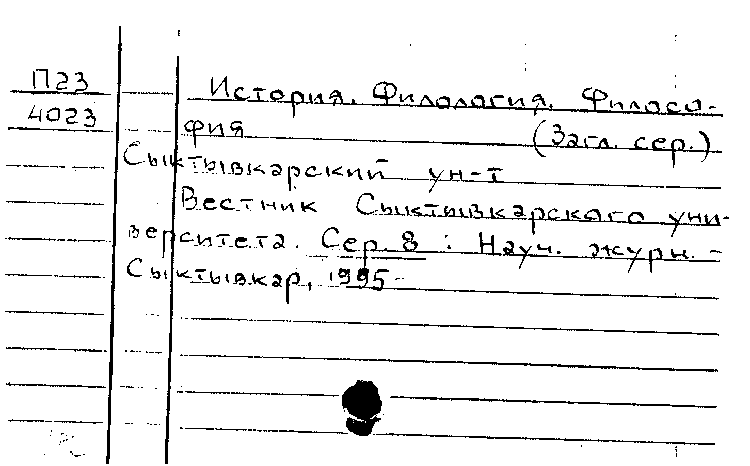 П23
4023
История. Филология. Филосо-
фия (Загл. сер.)
Сыктывкарский ун-т
Вестник Сыктывкарского уни-
верситета. Сер. 8 : Науч. журн. -
Сыктывкар, 1995-